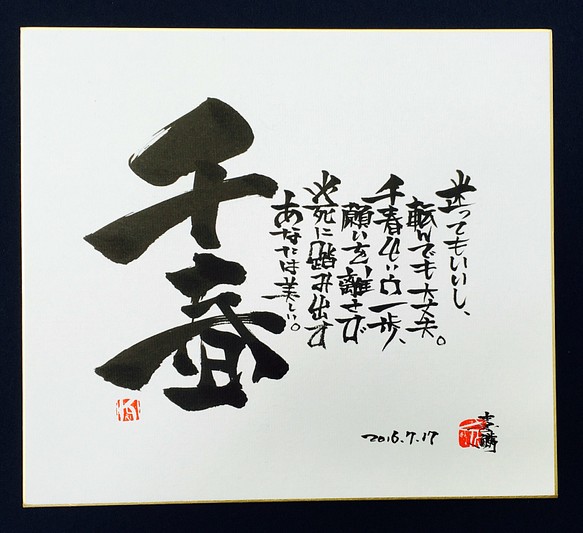 千春
迷ってもいいし、
転んでも大丈夫。
千春 一歩、
願いを離さず
必死に踏み出す
あなたは美しい。
2016.7.17